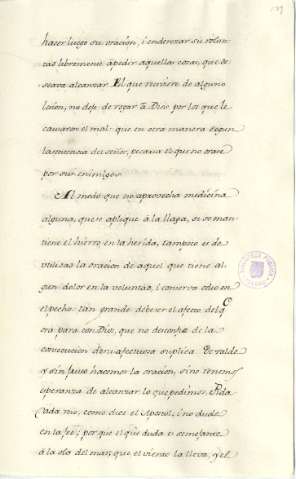 hacer luego su oración, i enderezar su volun-
tad libremente à pedir aquellas cosas, que de-
seava alcanzar. El que reciviere de alguno
lesion, no deje de rogar à Dios por los que le
causaron el mal: que en otra manera segun
la sentencia del señor, pecaria el que no orare
por sus enimigos.
Al modo que no aprovecha medicina
alguna, que se aplique à la llaga, si se man-
tiene el hierro en la herida, tampoco es de
utilidad la oracion de aquel que tiene al-
gun dolor en la voluntad, i conserva odio en
el pecho: tan grande debe ser el afecto del q̃
ora para con Dios, que no desconfie de la
consecucion de su afectuosa suplica. De valde
y sin fruto hacemos la oracion, si no tenemos
esperanza de alcanzar lo que pedimos. Pida
cada uno, como dice el Apostol, i no dude
en la feè; porque el que duda es semejante
à la ola del mar, que el viento la lleva, y el